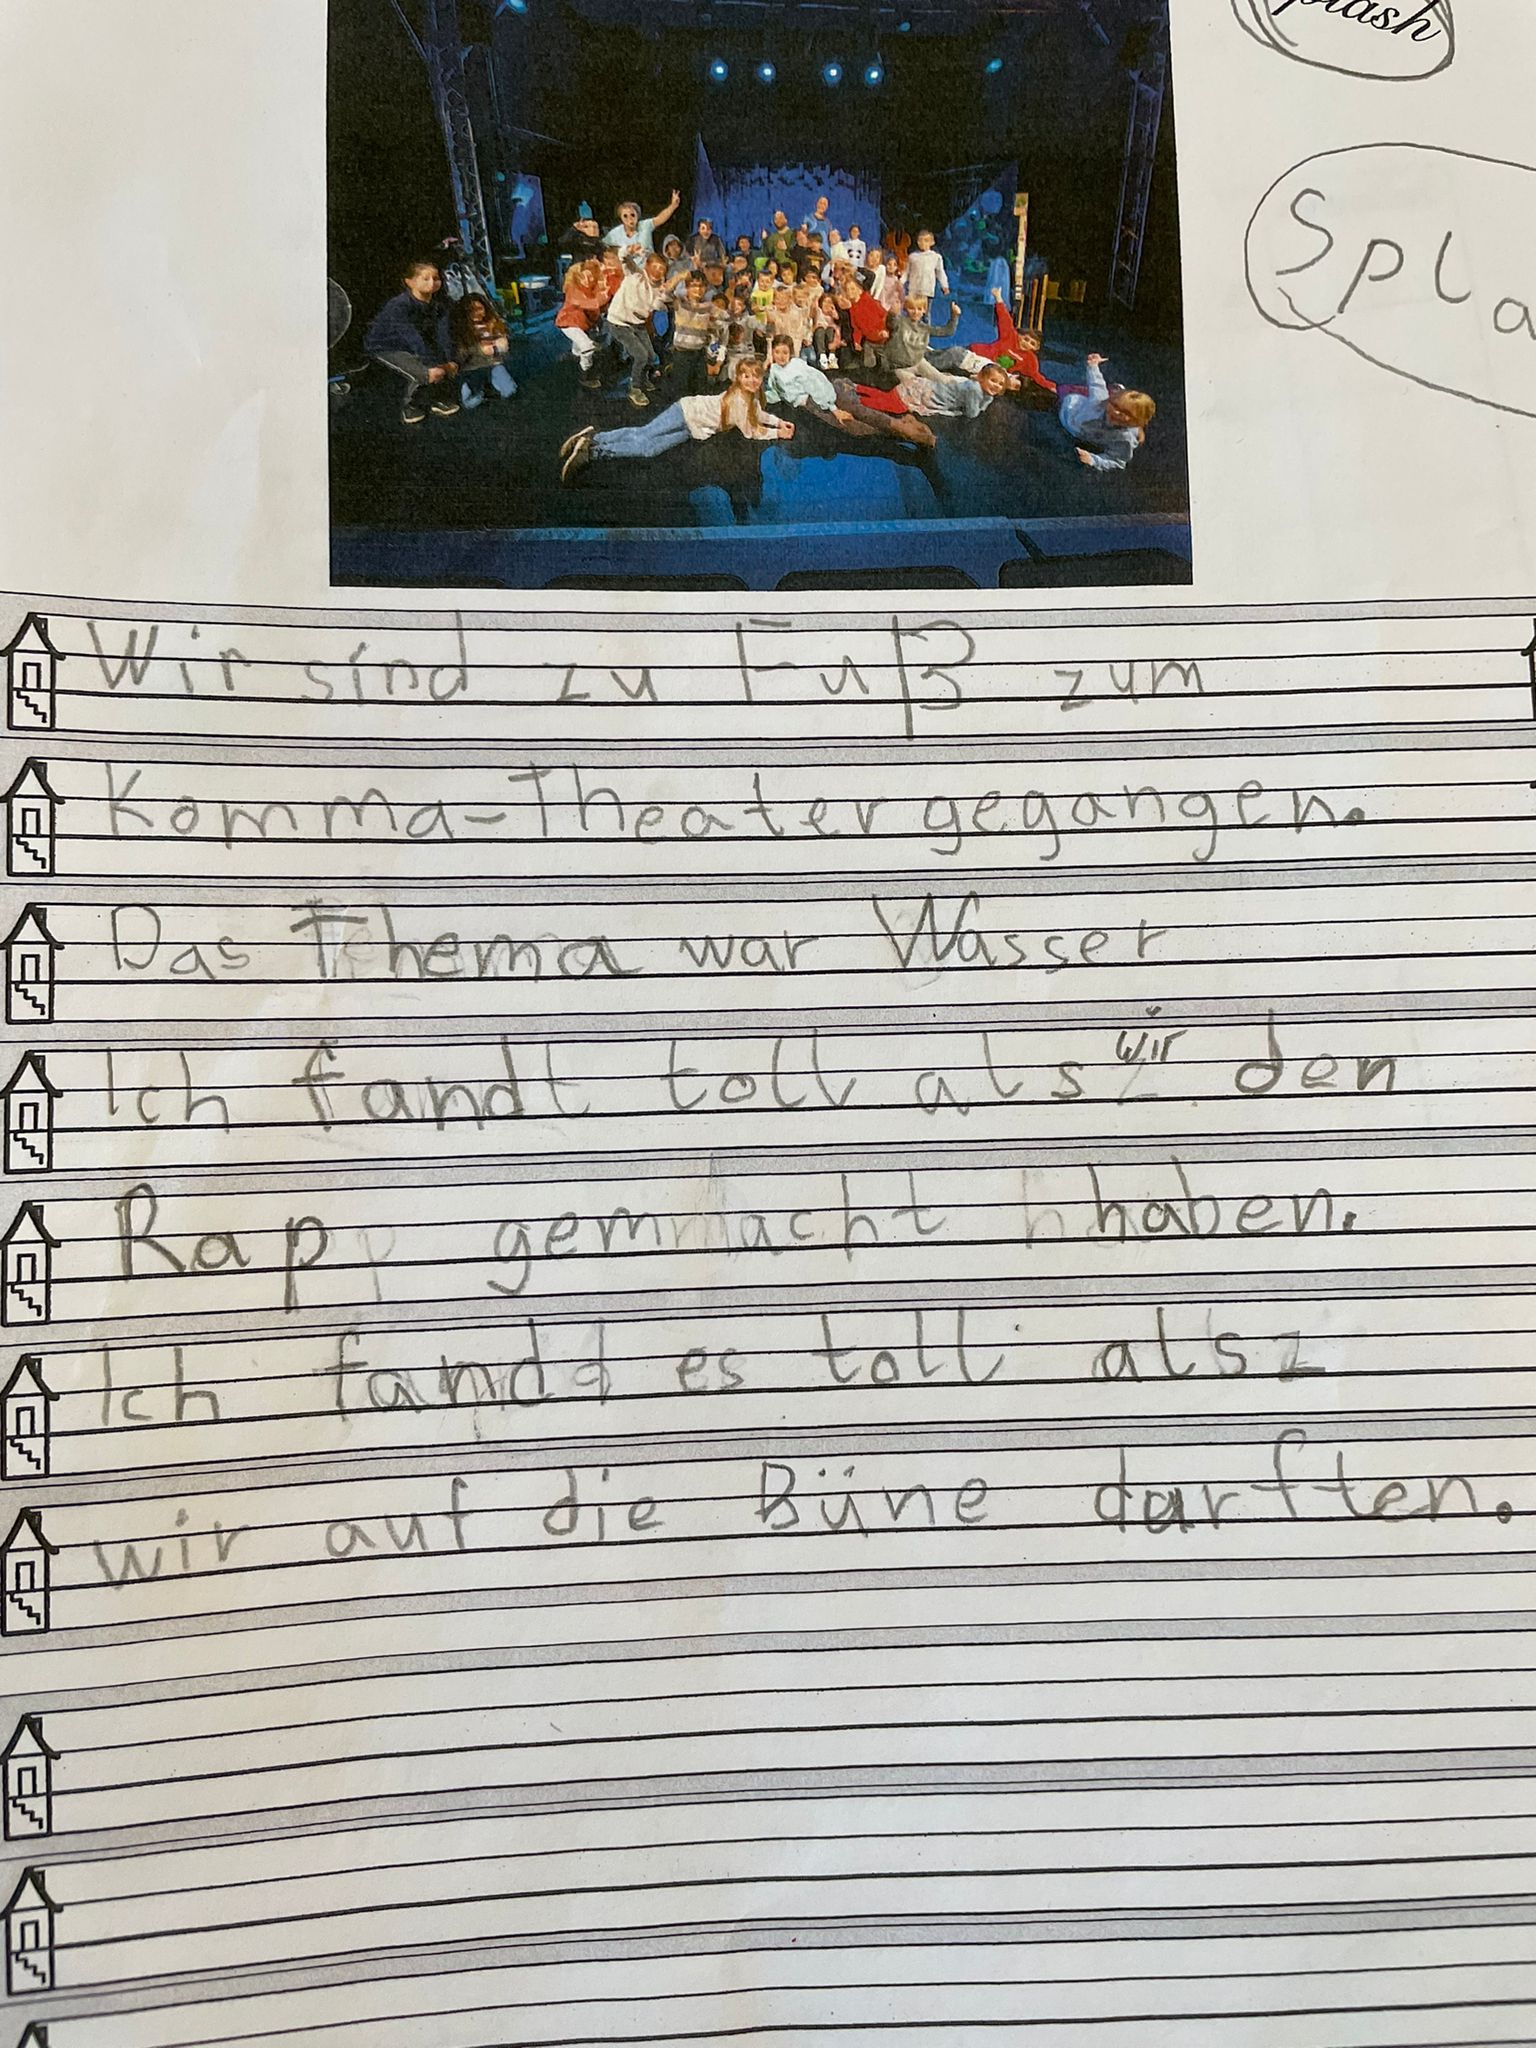 splash
Spla
Wir sind zu Fuß zum
Komma-Theater gegangen.
Das Thema war Wasser
Ich fandt toll als wir den
Rap gemacht haben.
Ich fand es toll als
wir auf die Büne darften.